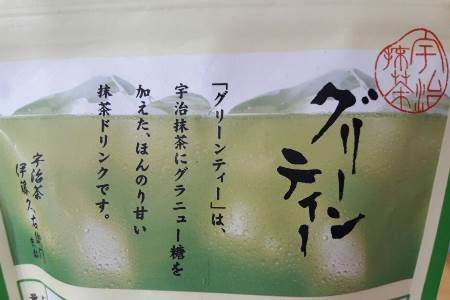 宇治
抹茶
グリーン
ティー
「グリーンティー」は、
宇治抹茶にグラニュー糖を
加えた、ほんのり甘い
抹茶ドリンクです。
宇治茶
伊藤久右衛門